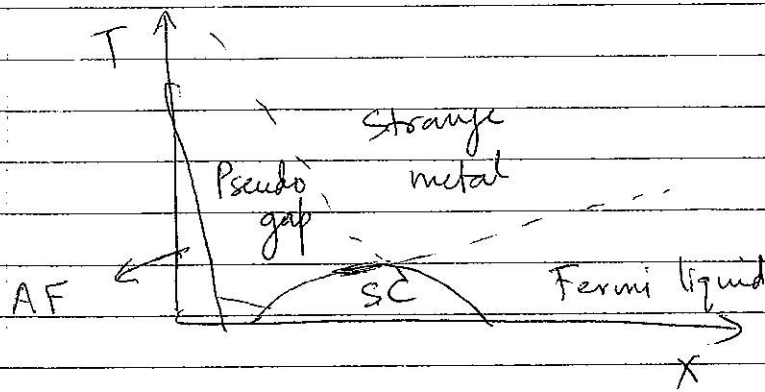 T
Strange
metal
Pseudo
gap
AF
SC
Fermi liquid
X